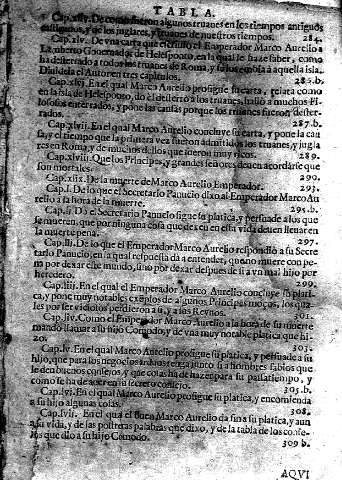 TABLA.
Cap.xliiij. De como fueron algunos truanes en los tiempos antiguos
y de los juglares, y truanes de nuestros tiempos. 284.
Cap.xlv. De vna carta que escriuio el Emperador Marco Aurelio a
Lamberto Gouernador de Helesponto, en la qual le haze saber, como
ha desterrado a todos los truanes de Roma, y se los embia a aquella isla.
Diuidela el Autor en tres capitulos. 285.b.
Cap.xlvj. En el qual Marco Aurelio prosigue su carta, y relata como
en la isla de Helesponto, do el desterro a los truanes, hallò a muchos Fi-
losofos enterrados, y pone las causas porque los truanes fueron dester-
rados. 287.b.
Cap.xlvij. En el qual Marco Aurelio concluye su carta, y pone la cau
sa, y el tiempo que la primera vez fueron admitidos los truanes, y jugla
res en Roma, y de muchos dellos que fueron muy ricos. 289.
Cap.xlviij. Que los Principes, y grandes señores deuen acordarse que
son mortales. 290.
Cap.xlix. De la muerte de Marco Aurelio Emperador. 293.
Cap.l. De lo que el Secretario Panucio dixo al Emperador Marco Au
relio a la hora de la muerte. 295.b.
Cap.lj. Do el Secretario Panucio sigue su platica, y persuade a los que
se mueren, que por ninguna cosa que dexen en esta vida deuen lleuar en
la muerte pena. 297.
Cap.lij. De lo que el Emperador Marco Aurelio respondiò a su Secre
tario Panucio, en la qual respuesta dà a entender, que no muere con pe-
na por dexar este mundo, sino por dexar despues de si a vn mal hijo por
heredero. 299.
Cap.liij. En el qual el Emperador Marco Aurelio concluye su plati-
ca, y pone muy notables exẽplos de algunos Principes moços, los qua-
les por ser viciosos perdieron a si, y a sus Reynos. 301.
Cap.liiij. Como el Emperador Marco Aurelio a la hora de su muerte
mandò llamar a su hijo Comodo, y de vna muy notable platica que hi-
zo. 303.
Cap.lv. En el qual Marco Aurelio prosigue su platica, y persuade a su
hijo, que para los negocios arduos tenga junto a si hombres sabios que
le den buenos consejos, y que cosas ha de hazer para su passatiempo, y
como se ha de auer en su secreto consejo. 305.b.
Cap.lvj. En el qual Marco Aurelio prosigue su platica, y encomienda
a su hijo algunas cosas. 308.
Cap.lvij. En el qual el buen Marco Aurelio da fin a su platica, y aun
a su vida, y de las postreras palabras que dixo, y de la tabla de los conse-
jos que dio a su hijo Comodo. 309 b.
AQVI